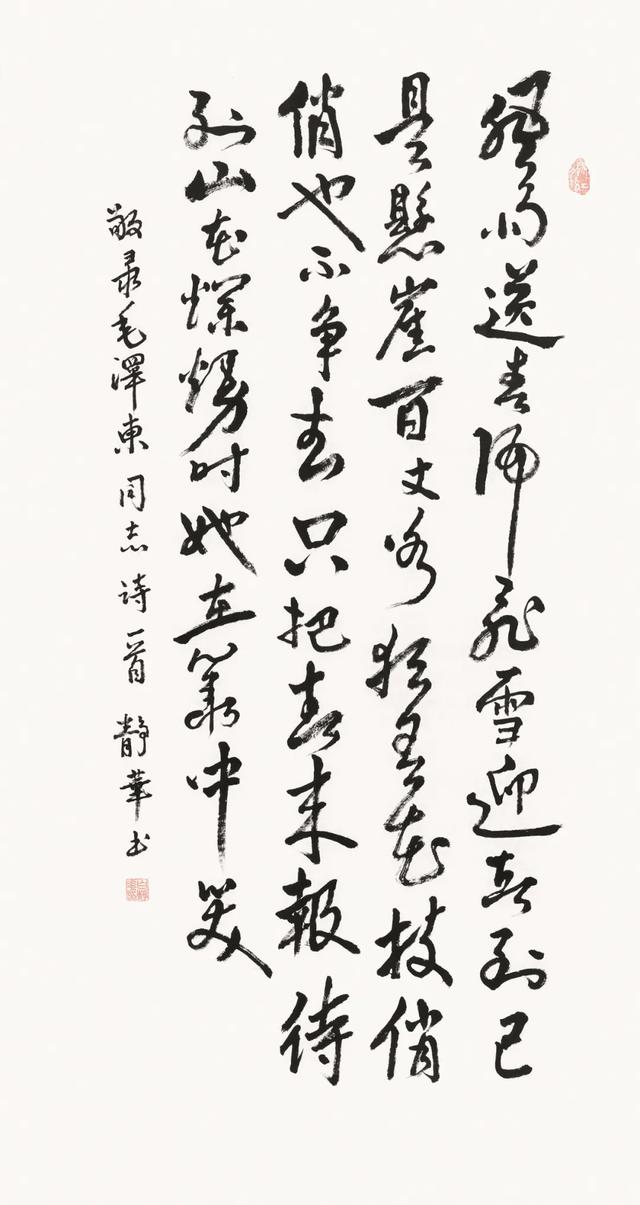 風雨送春歸飛雪迎春到已
是懸崖百丈冰猶有花枝俏
俏也不争春只把春来報待
到山花爛熳时她在叢中笑
敬录毛澤東同志詩一首 靜華书